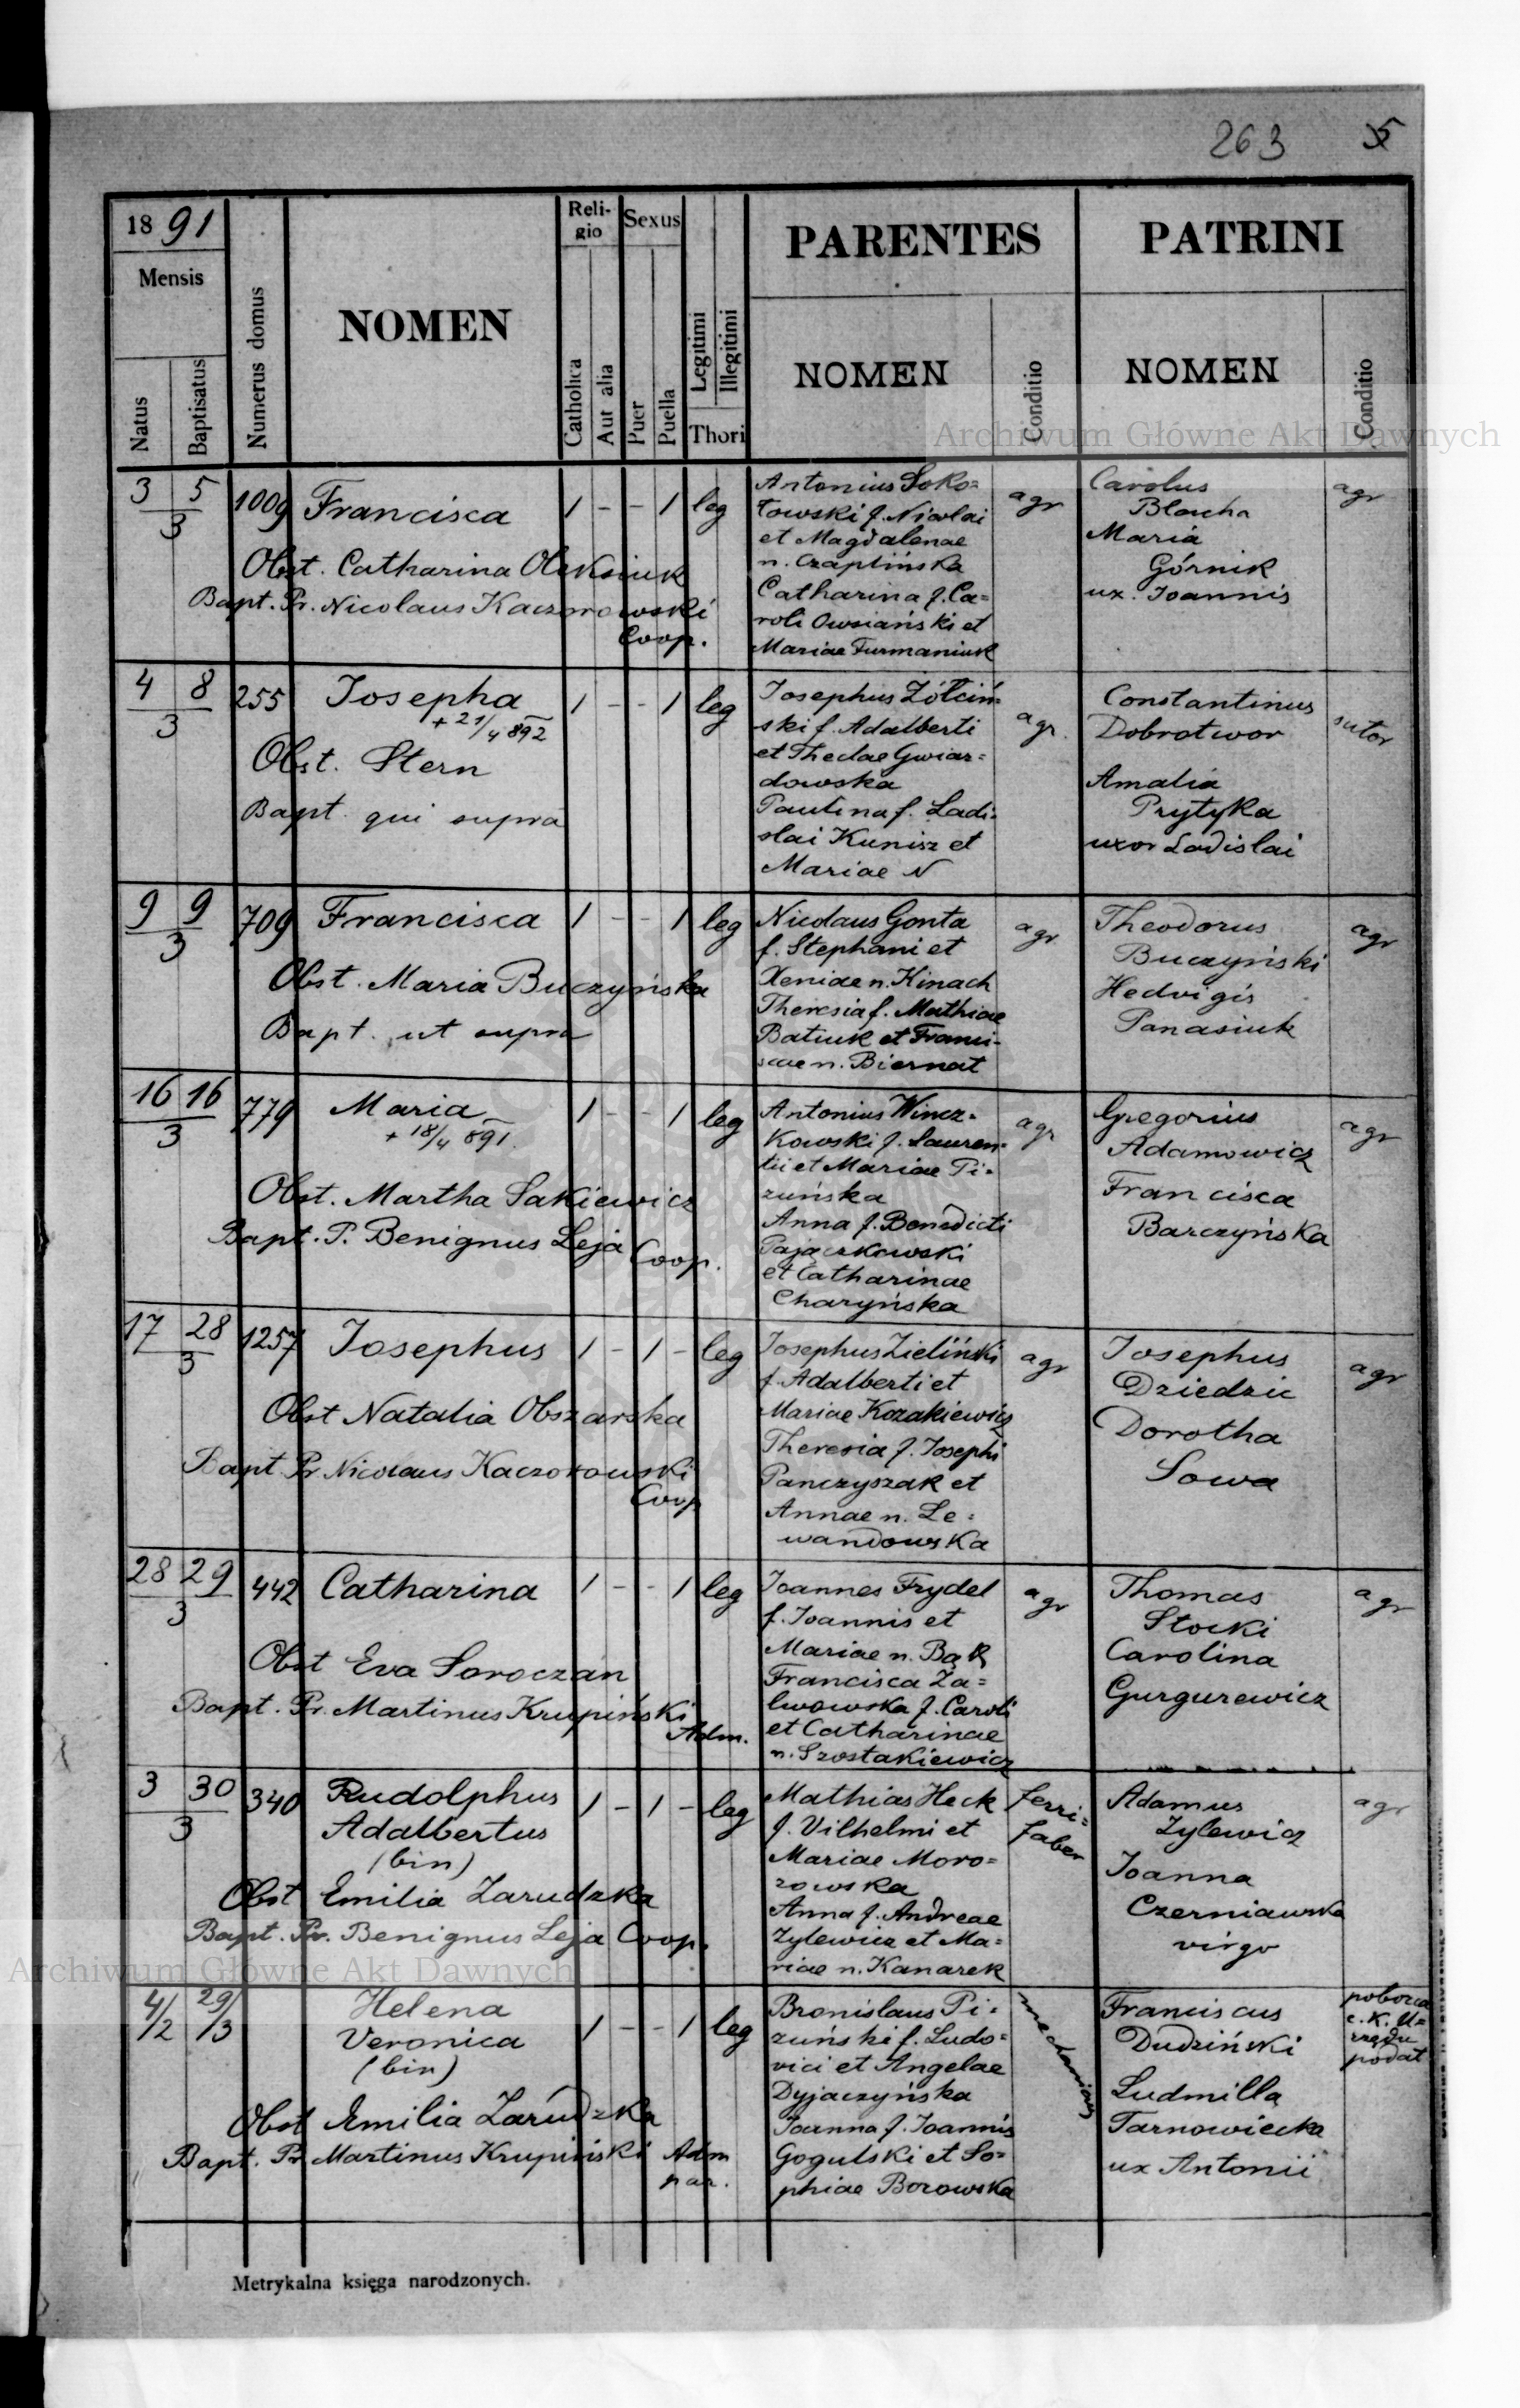 263 5
1891
Mensis
Natus
Baptisatus
Numerus domus
NOMEN
Religio
Catholica
Aut alia
Sexus
Puer
Puella
Legitimi
Illegitimi
Thori
PARENTES
NOMEN
Conditio
PATRINI
NOMEN
Conditio
Archiwum Główne Akt Dawnych
3 5
3
1009
Francisca
1 - - 1 leg
Obst. Catharina Oleksiuk
Bapt. Pr. Nicolaus Kaczorowski
Coop.
Antonius Soko=
łowski f. Nicolai
et Magdalenae
n. Czaplińska
Catharina f. Ca=
roli Owsiański et
Mariae Furmaniuk
agr
Carolus
Blacha
Maria
Górnik
ux. Joannis
agr
4 8
3
255
Josepha
+ 21/4 892
1 - - 1 leg
Obst. Stern
Bapt. qui supra
Josephus Żółciń=
ski f. Adalberti
et Theclae Gwiaz=
dowska
Paulina f. Ladi=
slai Kunisz et
Mariae N
agr.
Constantinus
Dobrotwor
Amalia
Prytyka
uxor Ladislai
sutor
9 9
3
709
Francisca
1 - - 1 leg
Obst. Maria Buczyńska
Bapt. ut supra
Nicolaus Gonta
f. Stephani et
Xeniae n. Kinach
Theresia f. Mathiae
Batiuk et Franci-
scae n. Biernat
agr
Theodorus
Buczyński
Hedvigis
Panasiuk
agr
16 16
3
779
Maria
+ 18/4 891.
1 - - 1 leg
Obst. Martha Sakiewicz
Bapt. P. Benignus Leja
Coop.
Antonius Wincz=
kowski f. Lauren=
tii et Mariae Pi=
zuńska
Anna f. Benedicti
Pajączkowski
et Catharinae
Charyńska
agr
Gregorius
Adamowicz
Francisca
Barczyńska
agr
17 28
3
1257
Josephus
1 - 1 - leg
Obst Natalia Obszarska
Bapt. Pr Nicolaus Kaczorowski
Coop
Josephus Zieliński
f. Adalberti et
Mariae Kozakiewicz
Theresia f. Josephi
Panczyszak et
Annae n. Le=
wandowska
agr
Josephus
Dziedzic
Dorotha
Sowa
agr
28 29
3
442
Catharina
1 - - 1 leg
Obst Eva Soroczan
Bapt. Pr. Martinus Krupiński
Adm.
Joannes Frydel
f. Joannis et
Mariae n. Bąk
Francisca Za=
lwowska f. Caroli
et Catharinae
n. Szostakiewicz
agr
Thomas
Stocki
Carolina
Gurgurewicz
agr
3 30
3
340
Rudolphus
Adalbertus
(bin)
1 - 1 - leg
Obst Emilia Zarudzka
Bapt. Pr. Benignus Leja Coop.
Mathias Heck
f. Vilhelmi et
Mariae Moro=
zowska
Anna f. Andreae
Zylewicz et Ma=
riae n. Kanarek
ferri=
faber
Adamus
Zylewicz
Joanna
Czerniawska
virgo
agr
Archiwum Główne Akt Dawnych
4/2 29/3
Helena
Veronica
(bin)
1 - - 1 leg
Obst Emilia Zarudzka
Bapt. Pr Martinus Krupiński Adm
par.
Bronislaus Pi=
zuński f. Ludo=
vici et Angelae
Dyjaczyńska
Joanna f. Joannis
Gogulski et So=
phiae Borowska
Franciscus
Dudziński
Ludmilla
Tarnowiecka
ux Antonii
poborca
c. K. U=
rzędu
podat
Metrykalna księga narodzonych.